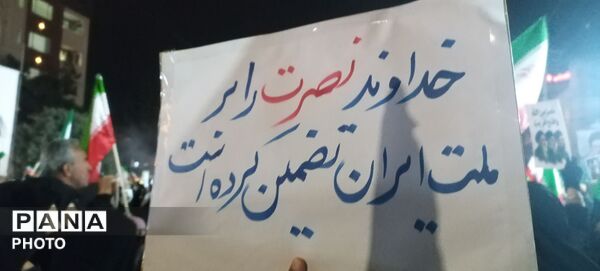 خداوند نصرت را بر
ملت ایران تضمین کرده است
PANA
PHOTO